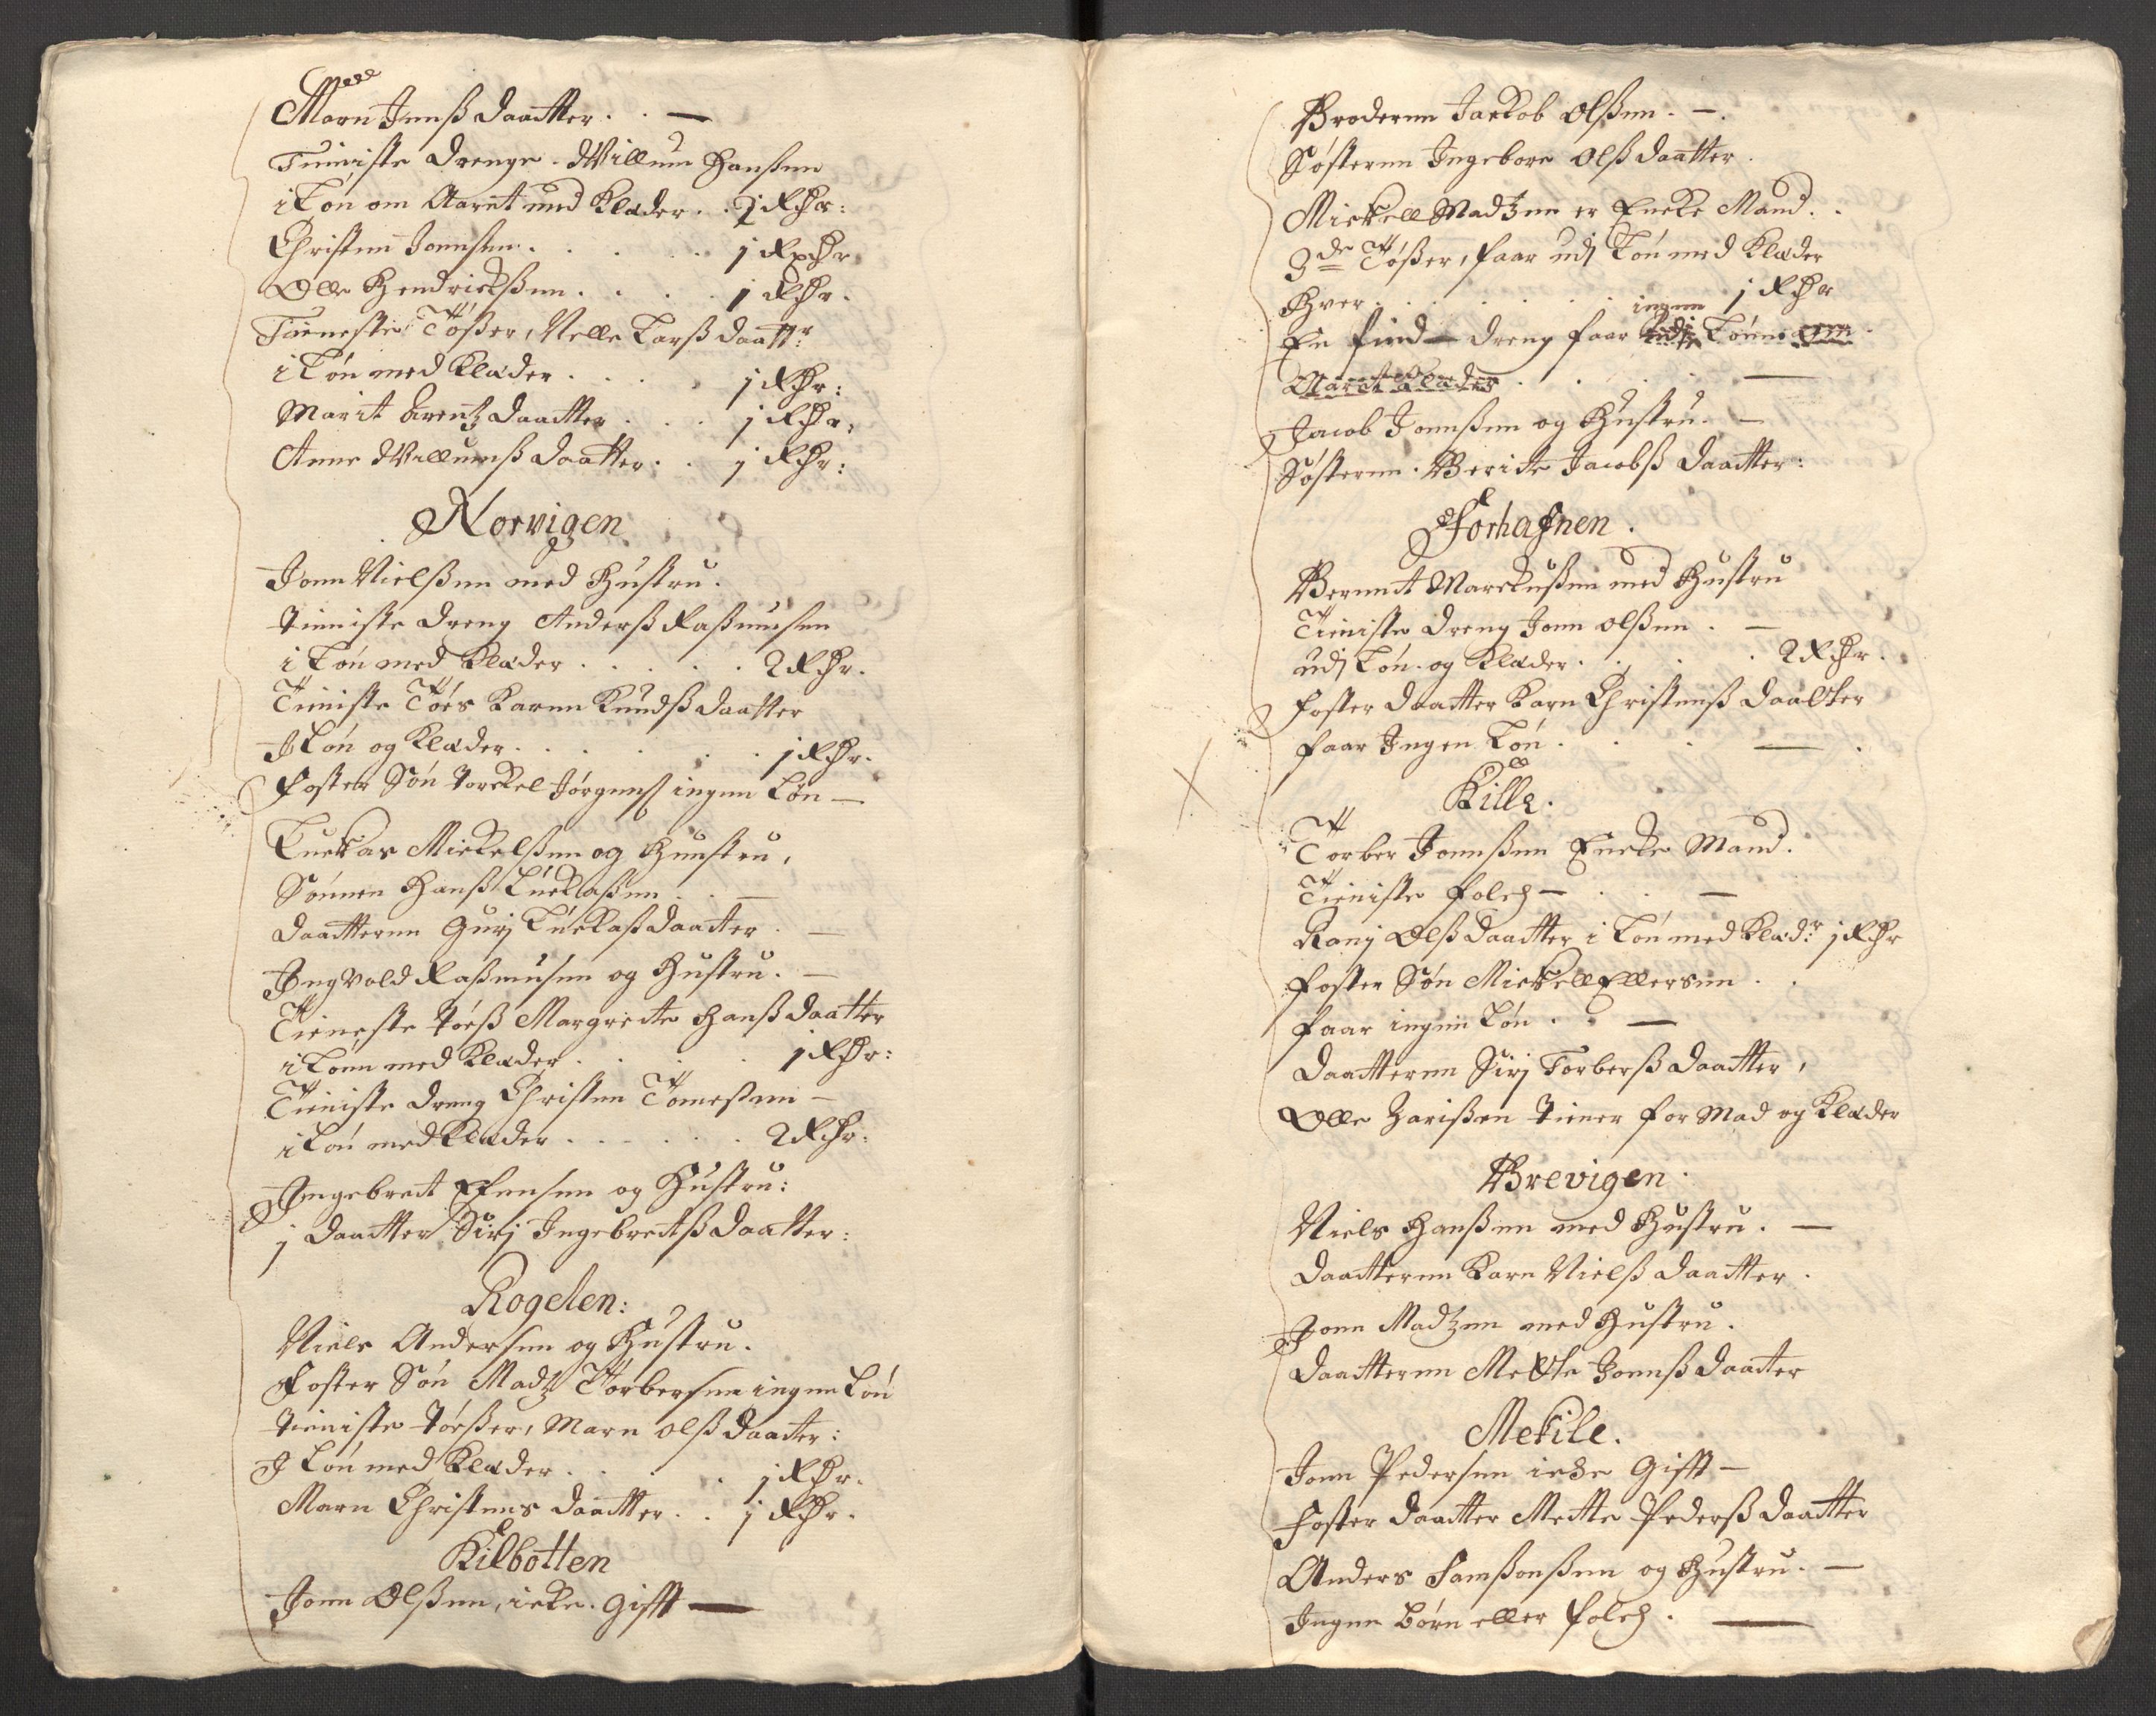 Marn Jenß daatter . . —
Tieniste Drenge. Willum Hanßen
i Løn om Aaret med Klæder . . 2 Rdr:
Christen Jonnsen . . . . 1 Rdr
Olle Hendrickßen . . . . 1 Rdr.
Tieneste Tøßer, Nelle Larß daattr:
i Løn med Klæder . . . . 1 Rdr:
Marit Arentz daatter . . . 1 Rdr.
Anne Willumß daatter . . 1 Rdr:
Norvigen
Jonn Nielßen med Hustru.
tieniste dreng Anderß Raßmusen
i Løn med Klæder . . . . . 2 Rdr.
Tieniste Tøes Karen Knudß daatter
J Løn og Klæder . . . . . 1 Rdr.
Foster Søn Torckel Jørgens ingen Løn —
Luckas Mickelßen og Huustru,
Sønnen Hanß Luckaßen . . —
daatteren Gurj Luckaß daatter . —
Jngvold Raßmusen og Hustru. —
Tieneste tøeß Margrete Hanß daatter
i Lønn med Klæder . . . . 1 Rdr:
Tieniste dreng Christen Tomesøen —
i Løn med Klæder . . . . . 2 Rdr:
Jngebret Efensen og Hustru:
1 daatter Sirj Jngebretß daatter:
Rogelen:
Niels Andersen og Hustru.
Foster Søn Madz Torbersen ingen Løn
tieniste tøeßer, Marn Olß daatter:
J Løn med Klæder . . . . 1 Rdr.
Marn Christens daatter . . 1 Rdr.
Kilbotten
Jonn Olßen, icke. Gifft —
Broderen Jackob Olßen. —.
Søsteren Jngebore Olß daatter.
Mickell Madzen er Encke Mand. .
3de Tøßer, faar udj Løn med Klæder
Hver . . . . . . . 1 Rdr
ingen
En find dreng faar udj Lønn om
Aaret Klæder . . . . —
Jacob Jonnßen og Hustru. —
Søsteren. Berite Jacobß daatter:
Forhafnen.
Berent Marckußen med Hustru
Tieniste dreng Jonn Olßen . —
udj Løn. og Klæder . . . . 2 Rdr.
Foster daatter Karn Christenß daatter
faar Jngen Løn . . . — .
Kille.
Torber Jonnßen Encke Mand.
Tieniste folch — . . —
Ranj Olß daatter i Løn med Klædr: 1 Rdr
Foster Søn Mickell Ellersen . .
faar ingen Løn . . —
daatteren Sirj Torberß daatter,
Olle Zarißen tiener for Mad og Klæder
Brevigen.
Niels Hanßen med Hustru. —
daatteren Karn Nielß daatter.
Jonn Madzen med Hustru.
daatteren Mette Jonnß daatter
Mekile.
Jonn Pedersen icke Gifft —
Foster daatter Mette Pederß daatter
Anders Samßonßen og Hustru. —
Jngen børn eller folch. —